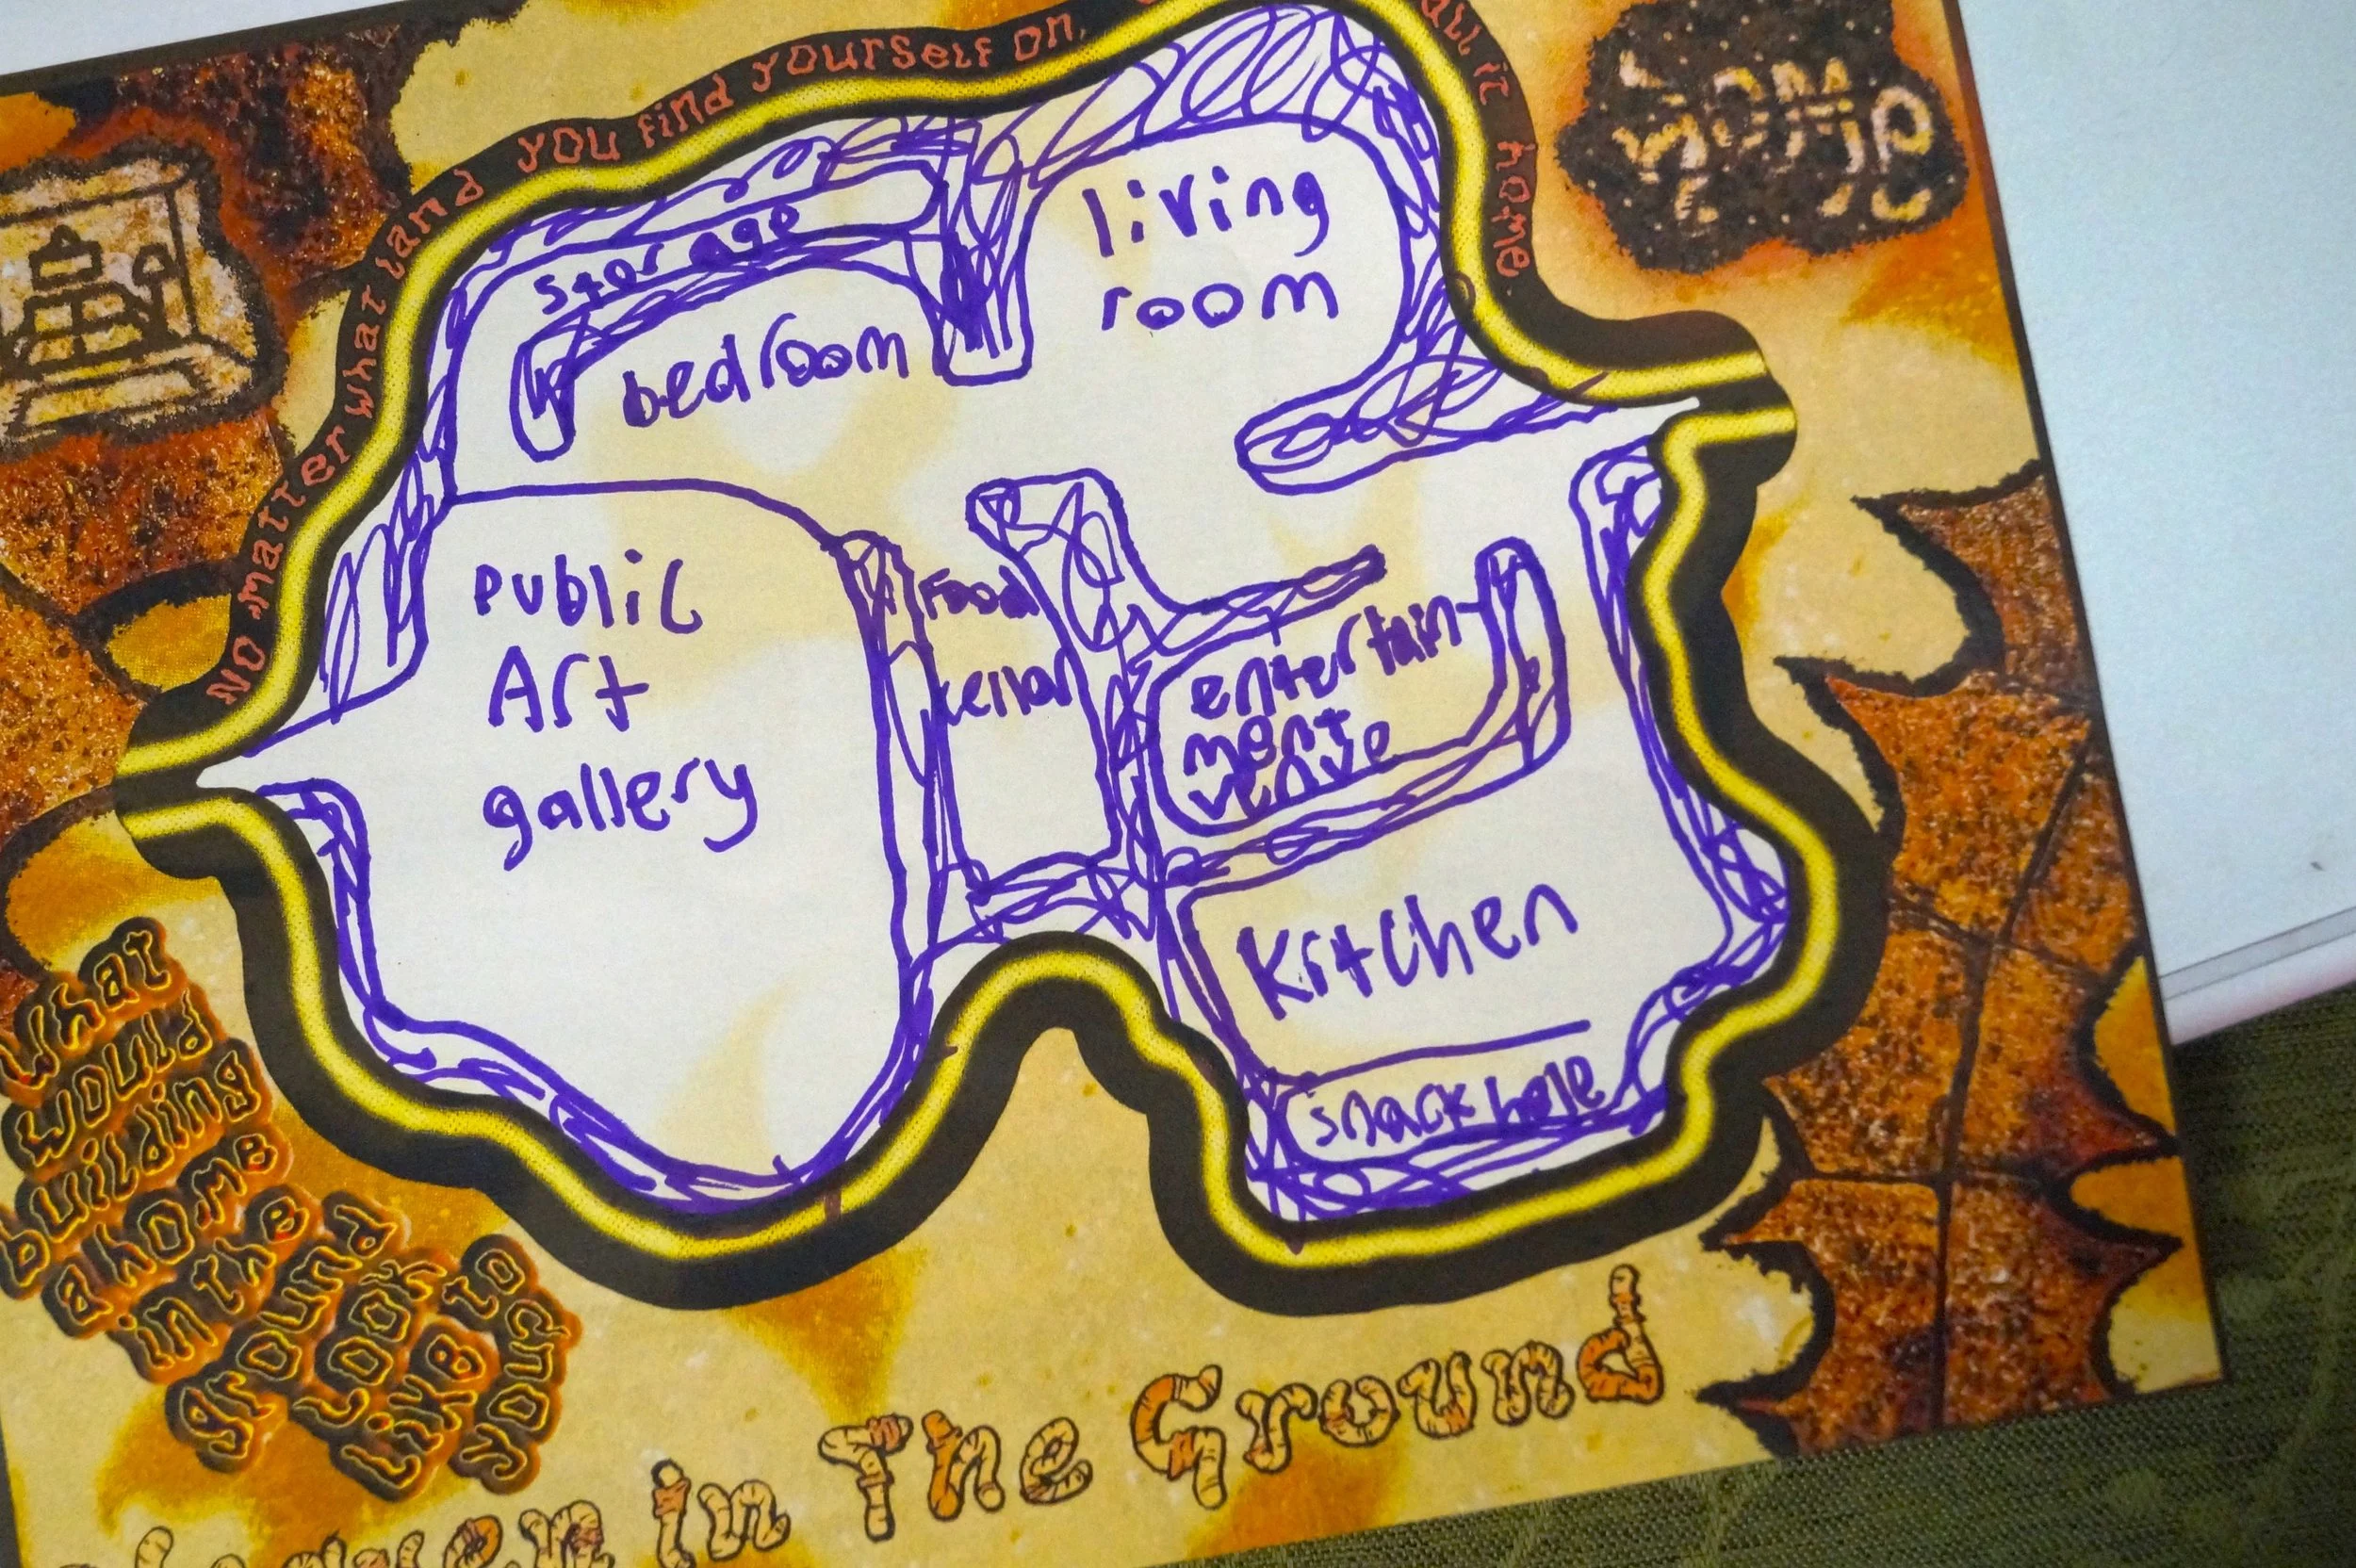 No matter what land you find yourself on,
all it home
Home
storage
bedroom
living
room
Public
Art
gallery
Food
cellar
entertain-
ment
venue
Kitchen
snack hole
What
would
building
a home
in the
ground
look
like to
you?
in The Ground